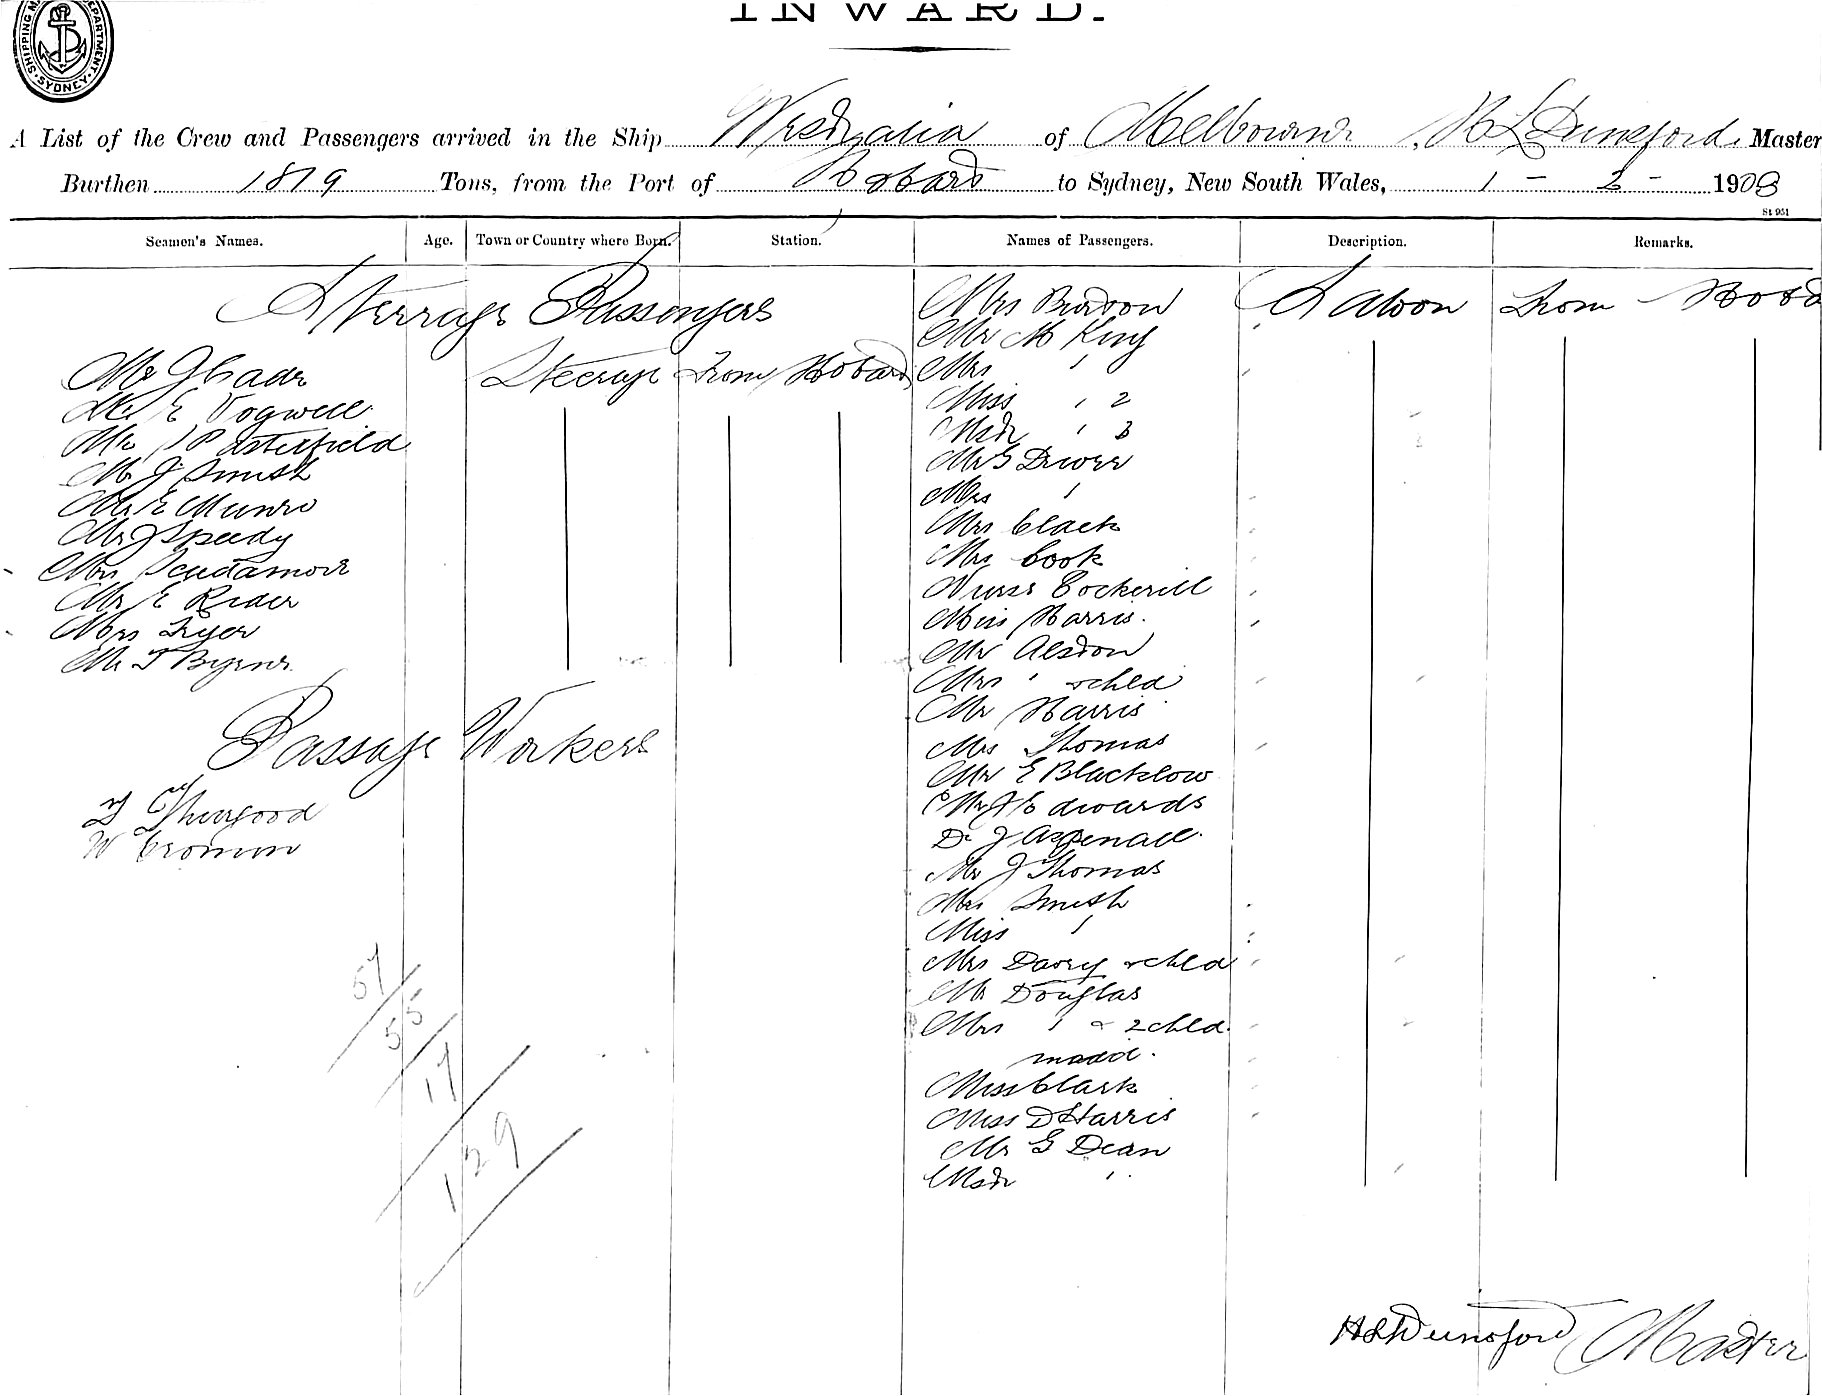 INWARD.
SHIPPING DEPARTMENT SYDNEY
A List of the Crew and Passengers arrived in the Ship Westralia of Melbourne, H L Dunsford, Master
Burthen 1819 Tons, from the Port of Hobart to Sydney, New South Wales, 1 - 2 - 1908
St 951
Seamen's Names. Age. Town or Country where Born. Station. Names of Passengers. Description. Remarks.
Steerage Passengers
Mr J Cade Steerage From Hobart
Mr E Vogwell
Mr Satterfield
Mr J Smith
Mr E Munro
Mr J Speedy
Mrs Scudamore
Mr E Rider
Mrs Fryer
Mr T Byrne
Passage Workers
T Thurgood
W Cromin
57
55
17
129
Mrs Burdon Saloon From Hoba
Mr M King
Mrs "
Miss " 2
Mstr " 3
Mr G Driver
Mrs "
Mrs Clack
Mrs Cook
Nurse Cockerill
Miss Harris.
Mr Alston
Mrs " & chld
Mr Harris
Mrs Thomas
Mr E Blacklow
Mr J Edwards
Dr J Aspenall.
Mr J Thomas
Mrs Smith
Miss "
Mrs Davey & chld
Mr Douglas
Mrs " & 2 chld.
maid.
Miss Clark
Miss D Harris
Mr G Dean
Mstr "
H L Dunsford Master